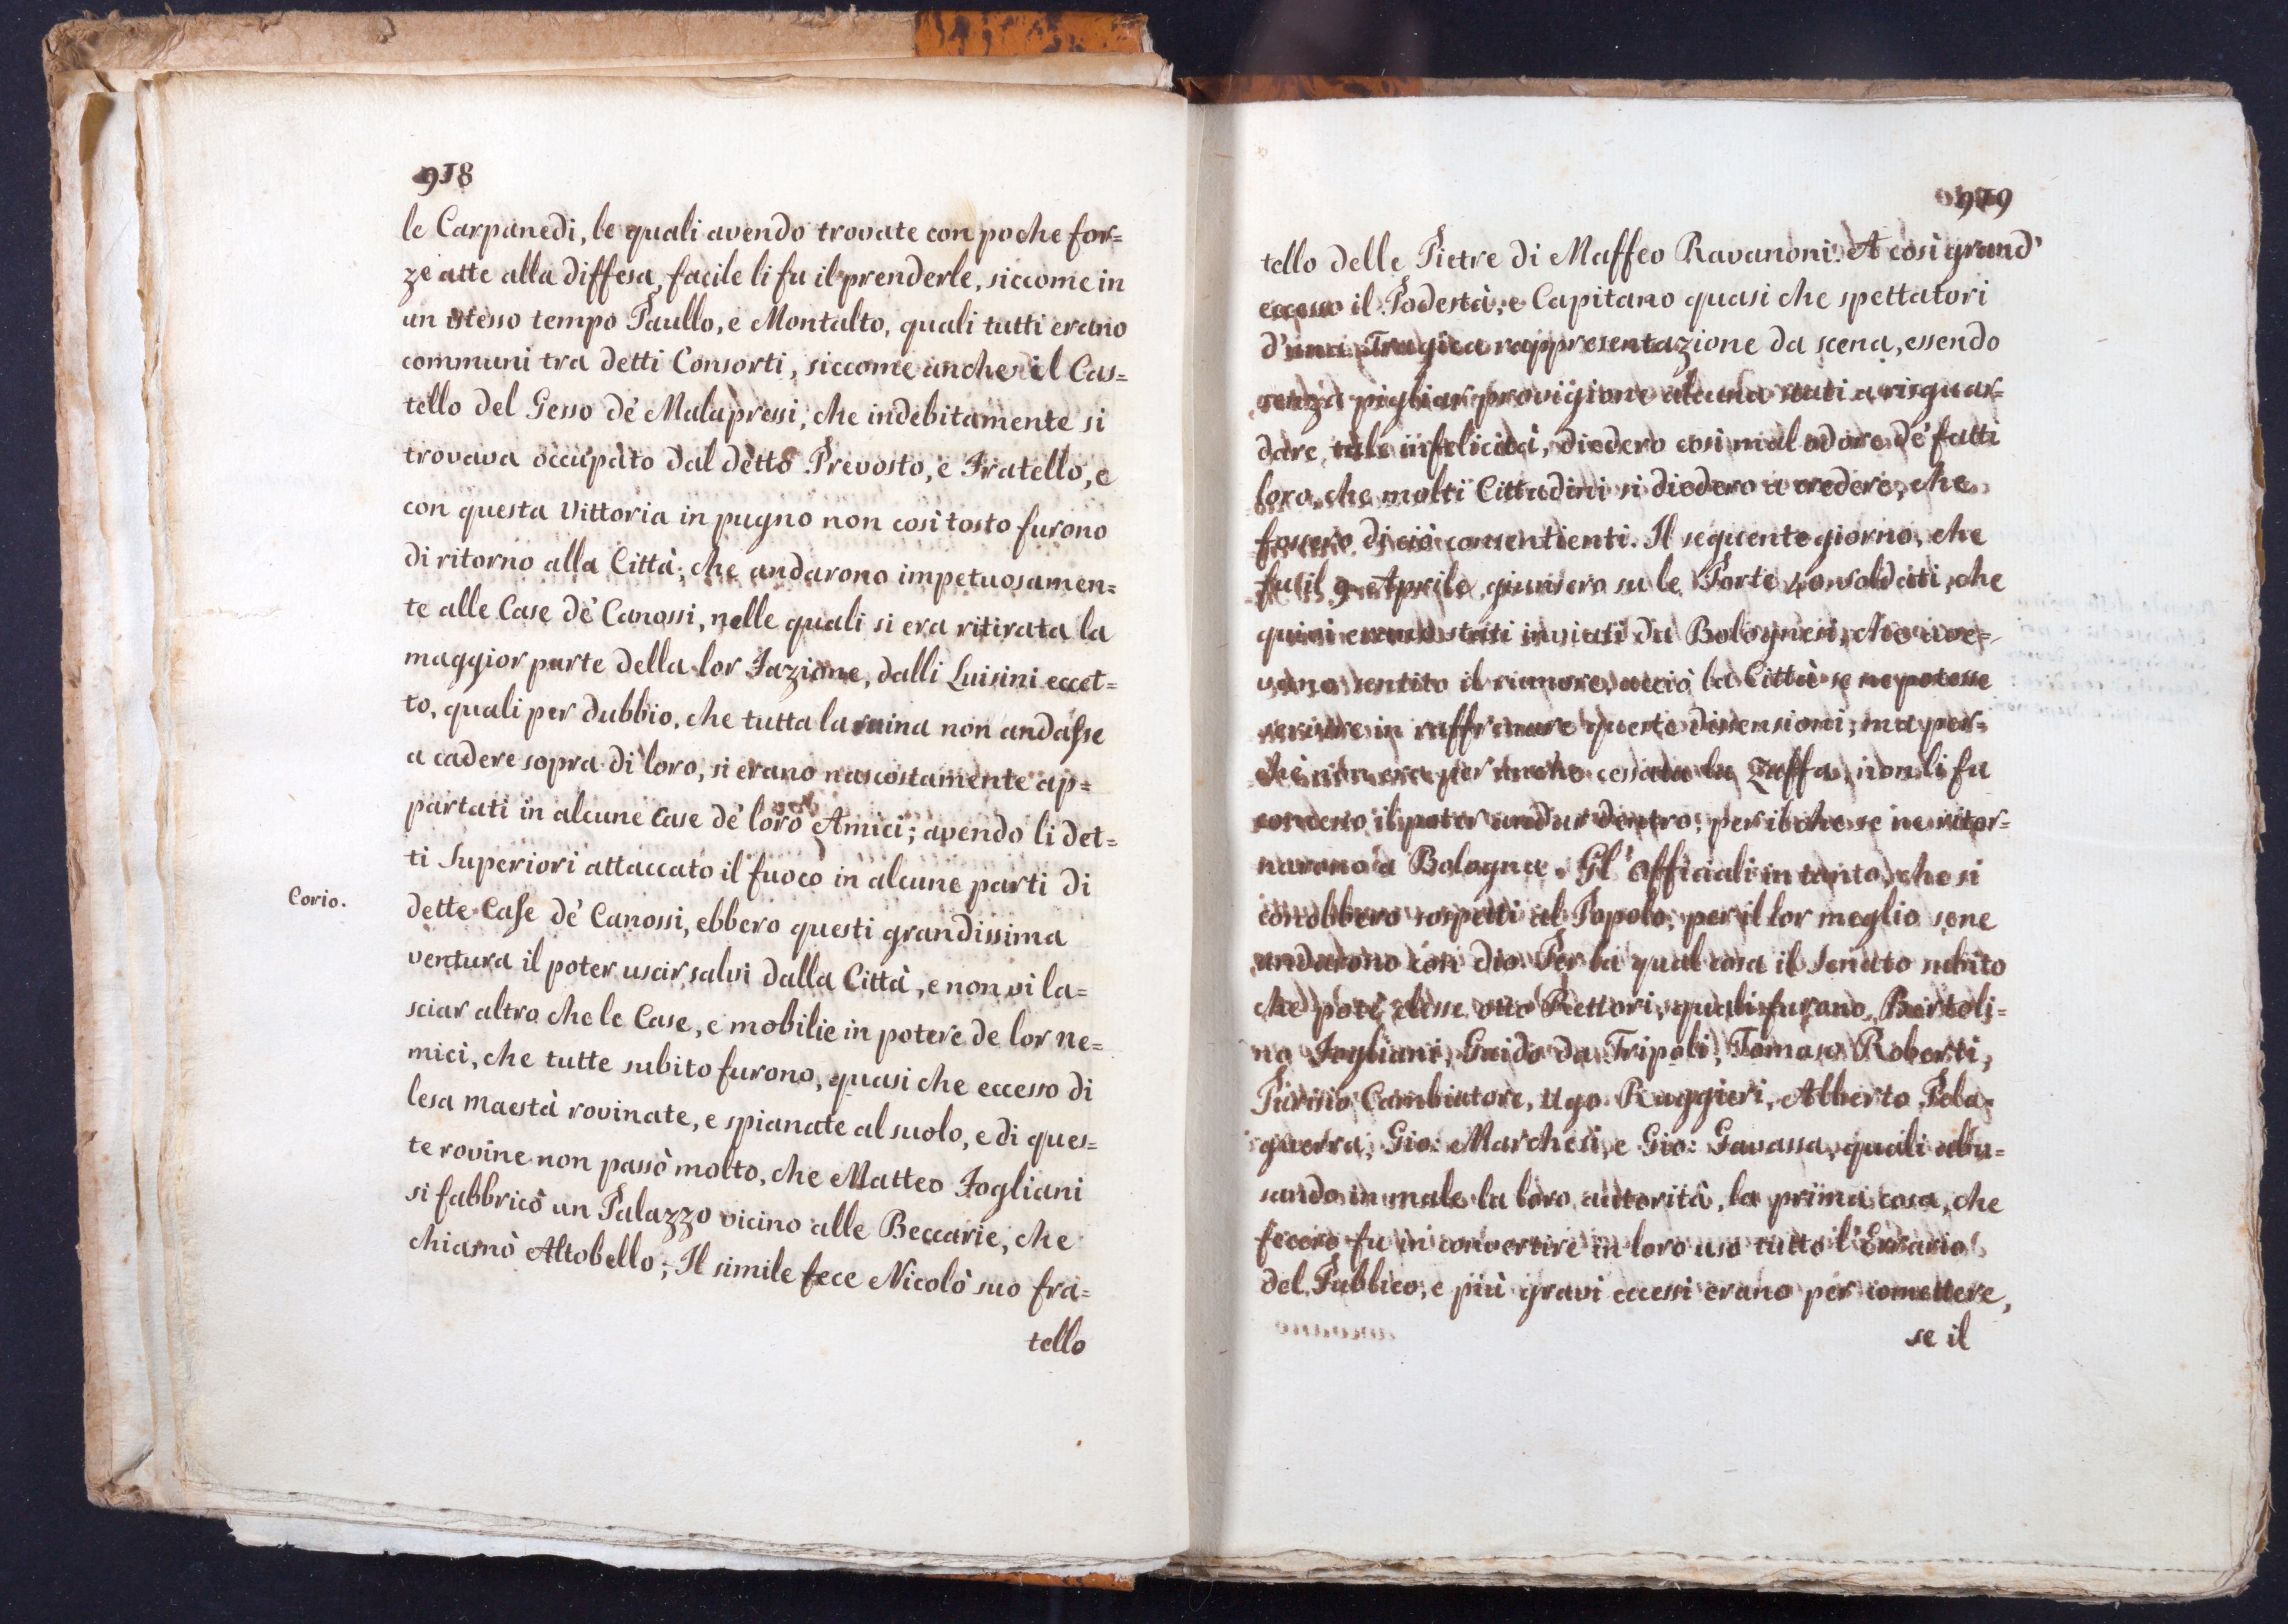 918
le Carpanedi, le quali avendo trovate con poche for=
ze atte alla diffesa, facile li fu il prenderle, siccome in
un istesso tempo Paullo, e Montalto, quali tutti erano
communi tra detti Consorti, siccome anche il Cas=
tello del Gesso de' Malapressi, che indebitamente si
trovava occupato dal detto Prevosto, e Fratello, e
con questa Vittoria in pugno non così tosto furono
di ritorno alla Città, che andarono impetuosamen=
te alle Case de' Canossi, nelle quali si era ritirata la
maggior parte della lor Fazione, dalli Luisini eccet=
to, quali per dubbio, che tutta la ruina non andasse
a cadere sopra di loro, si erano nascostamente ap=
partati in alcune Case de' loro Amici; avendo li det=
ti Superiori attaccato il fuoco in alcune parti di
Corio.
dette Case de' Canossi, ebbero questi grandissima
ventura il poter uscir salvi dalla Città, e non vi la=
sciar altro che le Case, e mobilie in potere de lor ne=
mici, che tutte subito furono, quasi che eccesso di
lesa maestà rovinate, e spianate al suolo, e di ques=
te rovine non passò molto, che Matteo Fogliani
si fabbricò un Palazzo vicino alle Beccarie, che
chiamò Altobello; Il simile fece Nicolò suo fra=
tello
919
tello delle Pietre di Maffeo Ravanoni. A così grand'
eccesso il Podestà, e Capitano quasi che spettatori
d'una Tragica rappresentazione da scena, essendo
senza pigliar provigione alcuna stati a risguar=
dare tale infelicità, diedero così mal odore de' fatti
loro, che molti Cittadini si diedero a credere, che
fossero di ciò consentienti. Il sequente giorno, che
fu il 9 Aprile giunsero su le Porte 40 Soldati, che
quivi erano stati inviati da Bolognesi, che ave=
vano sentito il rumore, acciò la Città se ne potesse
servire in raffrenare queste dissensioni; ma per=
chè non era per anche cessata la Zuffa, non li fu
concesso il poter andar dentro; per il che se ne ritor=
narono a Bologna. Gl'Officiali in tanto, che si
conobbero sospetti al Popolo, per il lor meglio sene
andarono con dio. Per la qual cosa il Senato subito
che potè elesse otto Rettori, quali furono Bertoli=
no Fogliani, Guido da Tripoli, Tomaso Roberti,
Cambiatore, Ugo Ruggieri, Alberto Pela=
guerra, Gio: Marchesi, e Gio: Gavassa, quali abu=
sando in male la loro autorità, la prima cosa, che
fecero fu in convertire in loro uso tutto l'Errario
del Pubblico, e più gravi eccessi erano per comettere,
se il